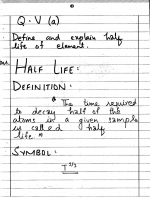 Q.V (a)
Define and explain half
life of element.
Ans.
HALF LIFE:
DEFINITION:
" The time required
to decay half of the
atoms in a given sample
is called half
life "
SYMBOL:
T 1/2